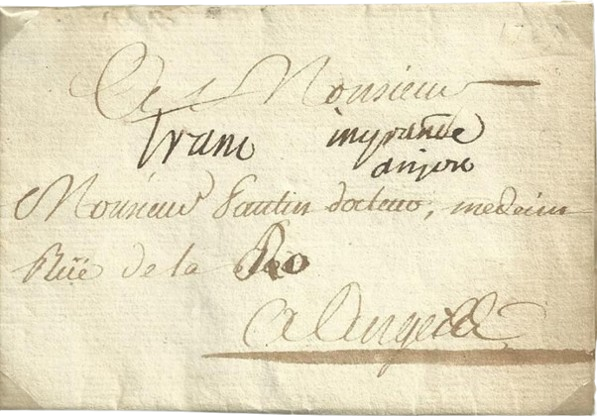 A Monsieur
franc ingrande
anjou
Monsieur fantin docteur, medecin
Rüe de la
A Angers